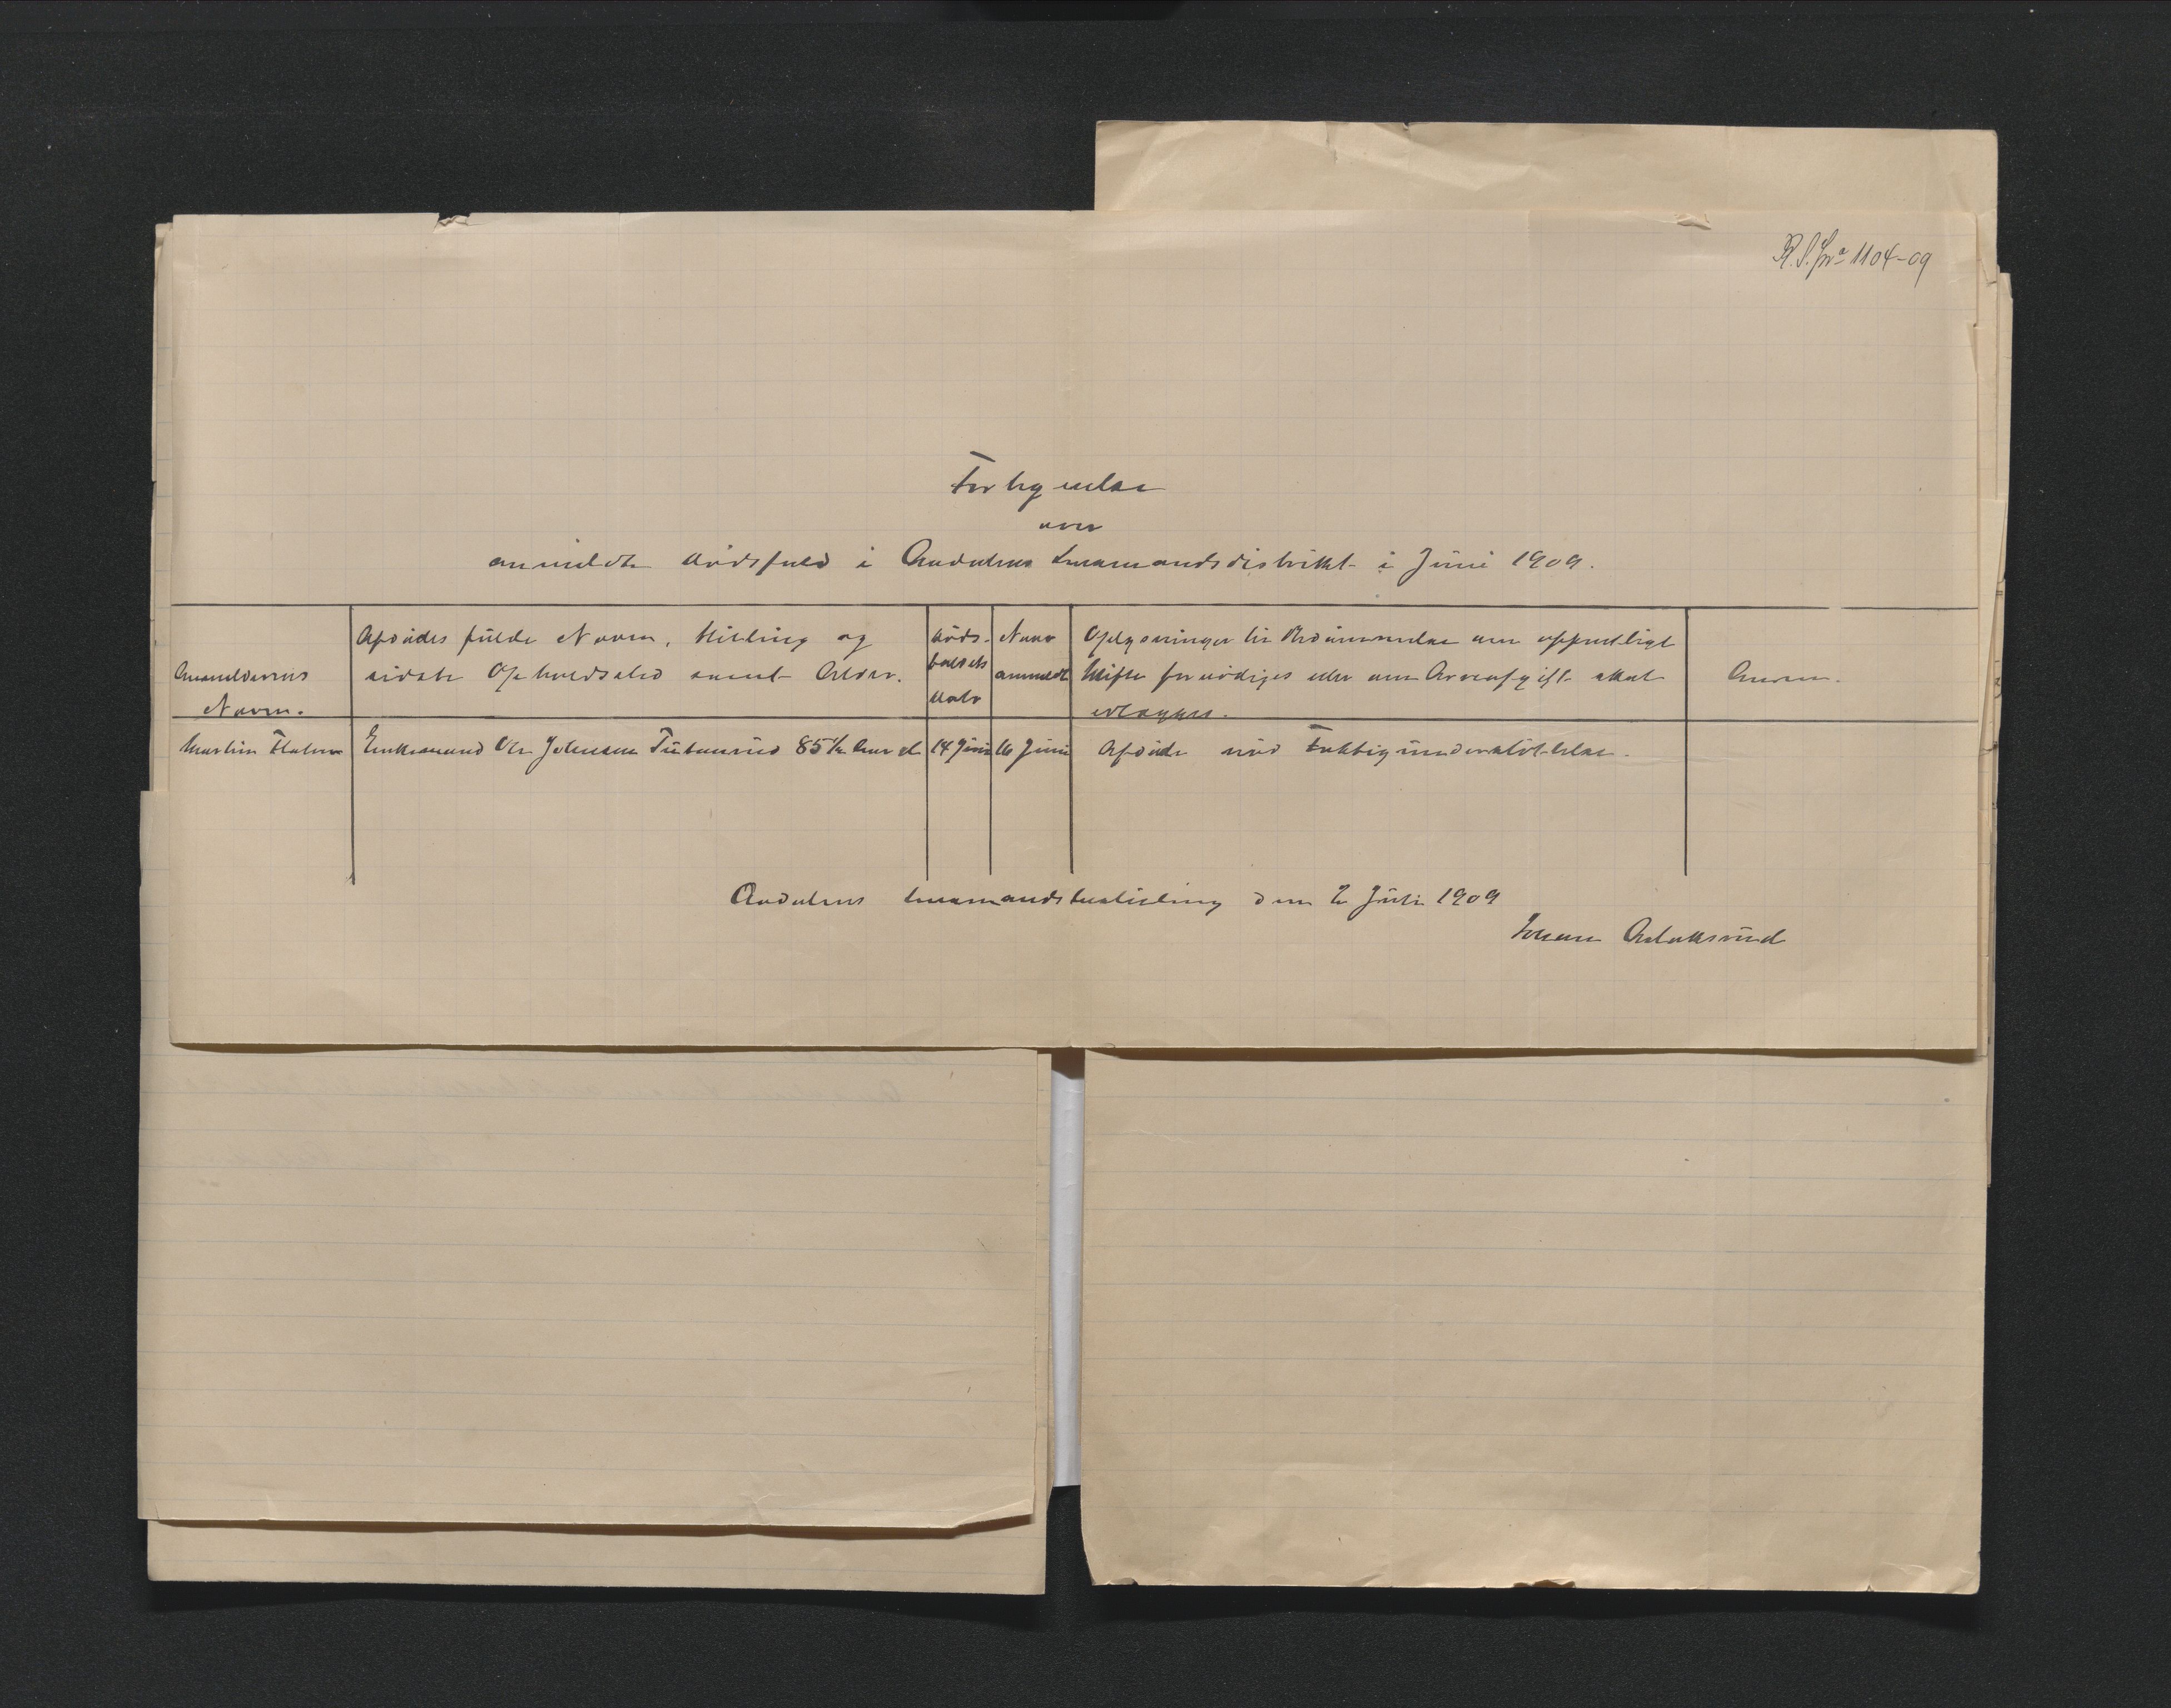 R. S. Jnr 1104-09
Fortegnelse
over
anmeldte Dødsfald i Aadalens Lensmandsdistrikt i Juni 1909.
Anmelderens
Navn.
Afdødes fulde Navn, Stilling og
sidste Opholdssted samt Alder.
Døds-
faldets
Dato
Naar
anmeldt
Oplysninger til Bedømmelse om offentligt
Skifte fornødiges eller om Arveafgift skal
erlægges.
Anm.
Martin Flaten
Enkemand Ole Johnsen 85 1/2 Aar gl.
14 Juni
16 Juni
Afdøde nød Fattigunderstøttelse.
Aadalens Lensmandsbestilling den 2 Juli 1909
Johan Aslaksrud